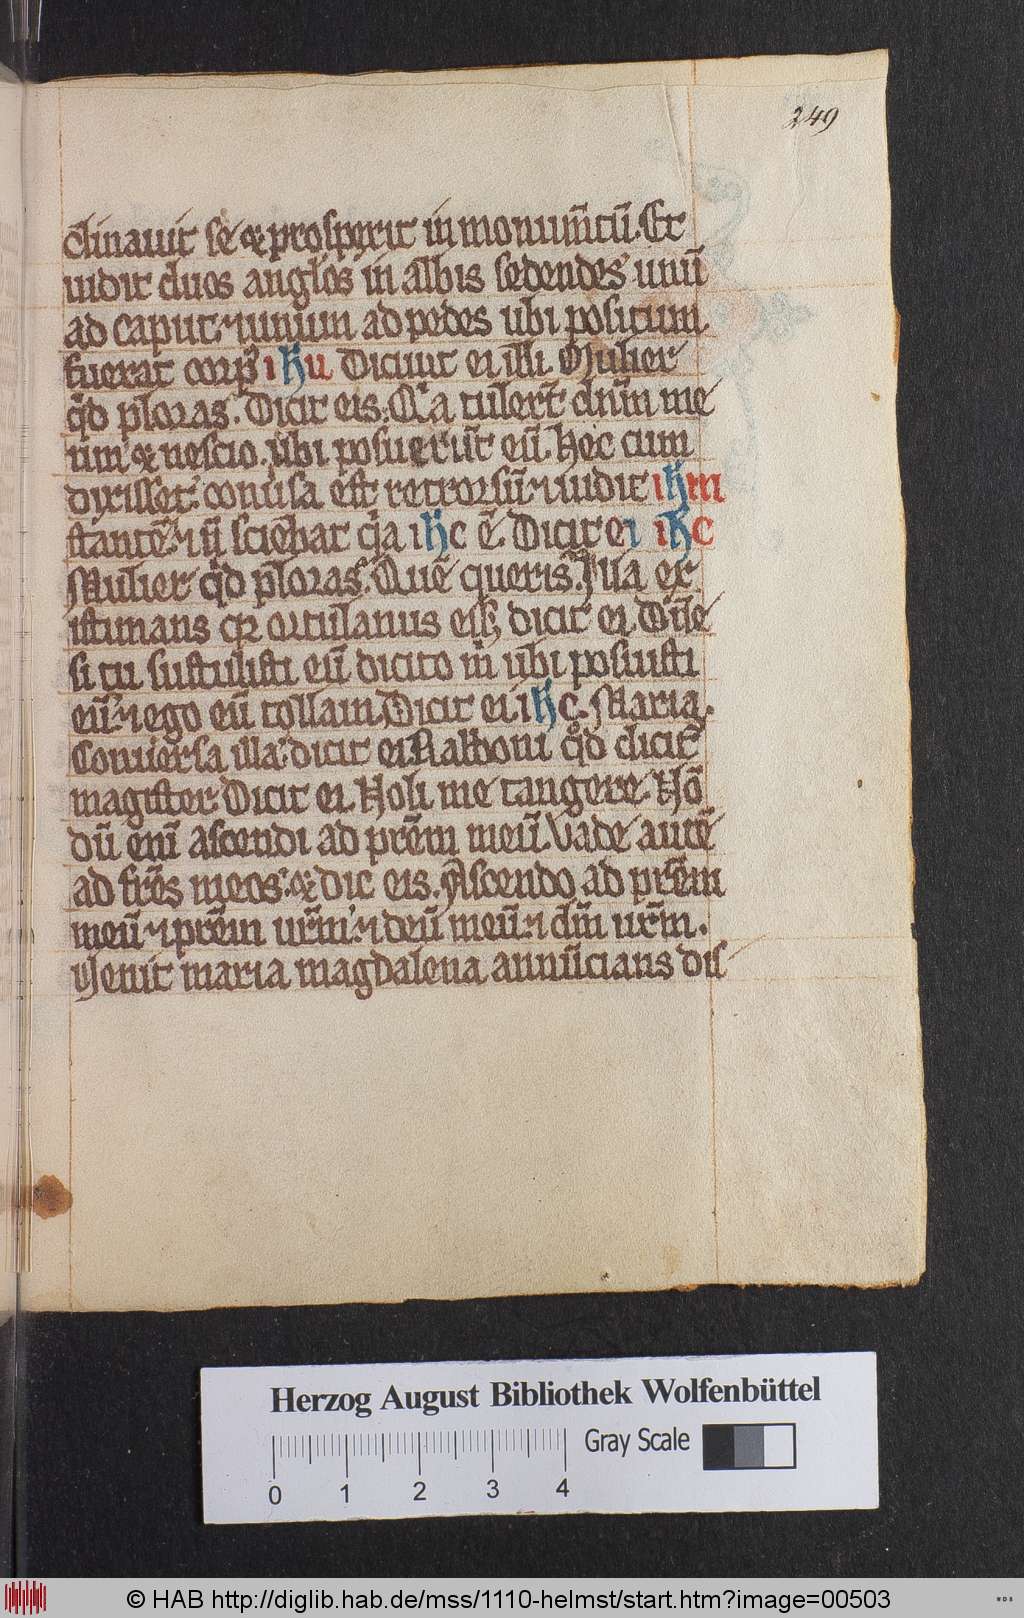 249
clinauit se & prospexit in monum̅tu̅. Et
uidit duos angl̅os in albis sedendes unu̅
ad caput ⁊ unum ad pedes ubi positum
fuerat corpꝰ ihu Dicu̅t ei illi. Mulier
q̅d ploras. Dicit eis. Qͥa tulert̅ dn̅m me
um & nescio. ubi posueru̅t eu̅. Hec cum
dixisset. conu̅sa est retrorsu̅. ⁊ uidit ihm
stante̅. ⁊ n̅ scieb̅at qͥa ihc e̅. Dicit ei ihc
Mulier q̅d ploras. Que̅ queris. Illa ex
istimans qꝛ ortulanus ess̅, dicit ei. Dn̅e
si tu sustulisti eu̅ dicito m̅ ubi posuisti
eu̅. ⁊ ego eu̅ tollam. Dicit ei. ihc. Maria.
Conuersa illa. dicit ei Rabboni qͦd dicit᷑
magister. Dicit ei. Noli me tangere. No̅
du̅ eni̅ ascendi ad pr̅em meu̅. Vade aute̅
ad fr̅es meos. & dic eis. Ascendo ad pr̅em
meu̅ ⁊ pr̅em ur̅m. ⁊ deu̅ meu̅ ⁊ dm̅ ur̅m.
Venit maria magdalena annu̅cians dis
Herzog August Bibliothek Wolfenbüttel
Gray Scale
0 1 2 3 4
© HAB http://diglib.hab.de/mss/1110-helmst/start.htm?image=00503